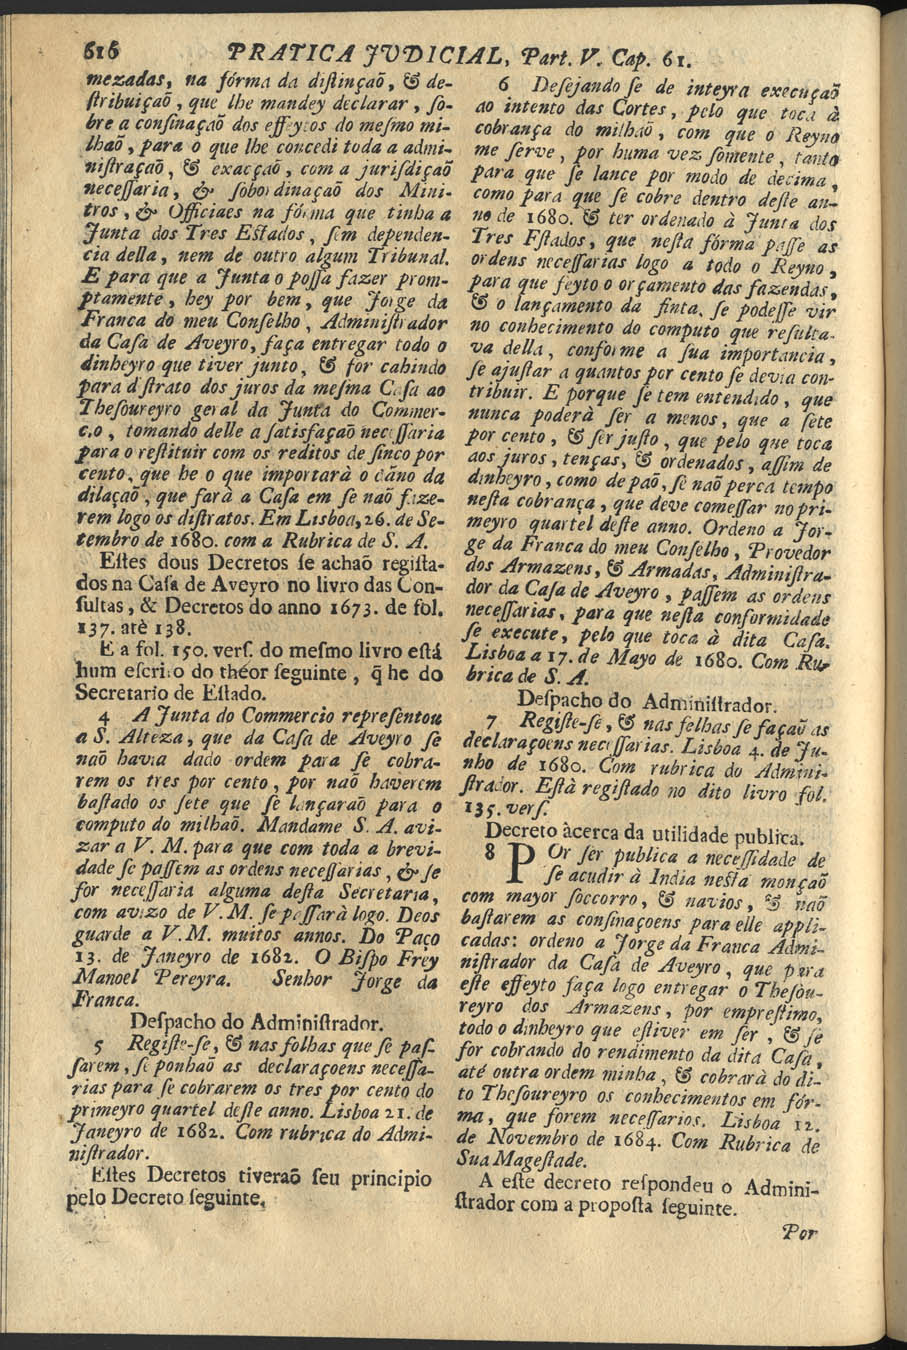 616 PRATICA JVDICIAL, Part. V. Cap. 61.
mezadas, na fórma da distinçaõ, & de-
stribuiçaõ, que lhe mandey declarar, so-
bre a consinaçaõ dos effeytos do mesmo mi-
lhaõ, para o que lhe concedi toda a admi-
nistraçaõ, & exacçaõ, com a jurisdiçaõ
necessaria, & sobordinaçaõ dos Mini-
tros, & Officiaes na fórma que tinha a
Junta dos Tres Estados, sem dependen-
cia della, nem de outro algum Tribunal.
E para que a Junta o possa fazer prom-
ptamente, hey por bem, que Jorge da
Franca do meu Conselho, Administrador
da Casa de Aveyro, faça entregar todo o
dinheyro que tiver junto, & for cahindo
para distrato dos juros da mesma Casa ao
Thesoureyro geral da Junta do Commer-
cio, tomando delle a satisfaçaõ necessaria
para o restituir com os reditos de sinco por
cento, que he o que importarà o dãno da
dilaçaõ, que farà a Casa em se naõ faze-
rem logo os distratos. Em Lisboa, 26. de Se-
tembro de 1680. com a Rubrica de S. A.
Estes dous Decretos se achaõ regista-
dos na Casa de Aveyro no livro das Con-
sultas, & Decretos do anno 1673. de fol.
137. atè 138.
E a fol. 150. vers. do mesmo livro está
hum escrito do théor seguinte, q̃ he do
Secretario de Estado.
4 A Junta do Commercio representou
a S. Alteza, que da Casa de Aveyro se
naõ havia dado ordem para se cobra-
rem os tres por cento, por naõ haverem
bastado os sete que se lançaraõ para o
computo do milhaõ. Mandame S. A. avi-
zar a V. M. para que com toda a brevi-
dade se passem as ordens necessarias, & se
for necessaria alguma desta Secretaria,
com avizo de V. M. se passarà logo. Deos
guarde a V. M. muitos annos. Do Paço
13. de Janeyro de 1682. O Bispo Frey
Manoel Pereyra. Senhor Jorge da
Franca.
Despacho do Administrador.
5 Registe-se, & nas folhas que se pas-
sarem, se ponhaõ as declaraçoens necessa-
rias para se cobrarem os tres por cento do
primeyro quartel deste anno. Lisboa 21. de
Janeyro de 1682. Com rubrica do Admi-
nistrador.
Estes Decretos tiveraõ seu principio
pelo Decreto seguinte.
6 Desejando se de inteyra execuçaõ
ao intento das Cortes, pelo que toca à
cobrança do milhaõ, com que o Reyno
me serve, por huma vez sómente, tanto
para que se lance por modo de decima,
como para que se cobre dentro deste an-
no de 1680. & ter ordenado à Junta dos
Tres Estados, que nesta fórma passe as
ordens necessarias logo a todo o Reyno,
para que feyto o orçamento das fazendas,
& o lançamento da finta, se podesse vir
no conhecimento do computo que resulta-
va della, conforme a sua importancia,
se ajustar a quantos por cento se devia con-
tribuir. E porque se tem entendido, que
nunca poderà ser a menos, que a sete
por cento, & ser justo, que pelo que toca
aos juros, tenças, & ordenados, assim de
dinheyro, como de paõ, se naõ perca tempo
nesta cobrança, que deve comessar no pri-
meyro quartel deste anno. Ordeno a Jor-
ge da Franca do meu Conselho, Provedor
dos Armazens, & Armadas, Administra-
dor da Casa de Aveyro, passem as ordens
necessarias, para que nesta conformidade
se execute, pelo que toca à dita Casa.
Lisboa a 17. de Mayo de 1680. Com Ru-
brica de S. A.
Despacho do Administrador.
7 Registe-se, & nas felhas se façaõ as
declaraçoens necessarias. Lisboa 4. de Ju-
nho de 1680. Com rubrica do Admini-
strador. Està registado no dito livro fol.
135. vers.
Decreto àcerca da utilidade publica.
8 POr ser publica a necessidade de
se acudir à India nesta monçaõ
com mayor soccorro, & navios, & naõ
bastarem as consinaçoens para elle appli-
cadas: ordeno a Jorge da Franca Admi-
nistrador da Casa de Aveyro, que para
este effeyto faça logo entregar o Thesou-
reyro dos Armazens, por emprestimo,
todo o dinheyro que estiver em ser, & se
for cobrando do rendimento da dita Casa,
até outra ordem minha, & cobrarà do di-
to Thesoureyro os conhecimentos em fór-
ma, que forem necessarios. Lisboa 12.
de Novembro de 1684. Com Rubrica de
Sua Magestade.
A este decreto respondeu o Admini-
strador com a proposta seguinte.
Por